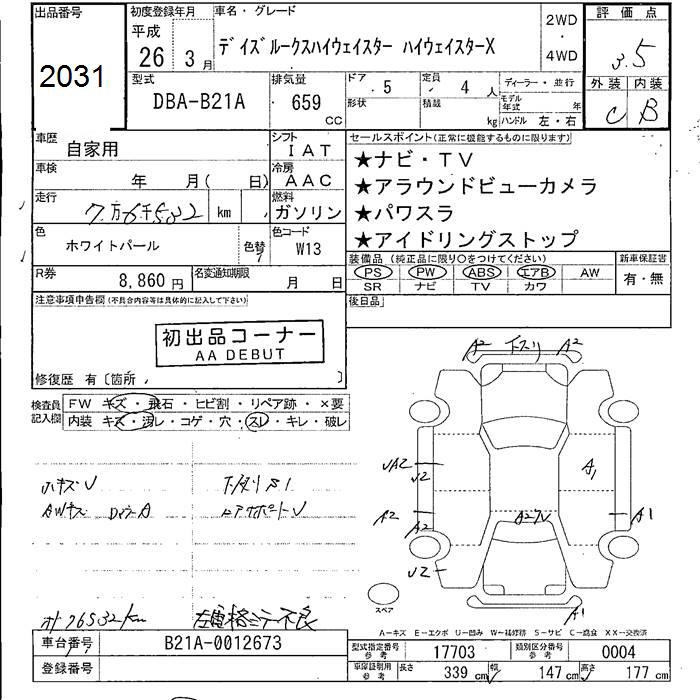 出品番号
2031
初度登録年月
平成
26 3 月
車名・グレード
デイズルークスハイウェイスター ハイウェイスターX
2WD
・
4WD
評価点
3.5
外装 内装
C B
型式
DBA-B21A
排気量
659
CC
ドア 5
形状
定員 4 人
積載 kg
ディーラー・並行
モデル年式 年
ハンドル 左・右
車歴
自家用
シフト
IAT
車検
年 月( 日)
冷房
AAC
走行
7万6千582 km
燃料
ガソリン
色
ホワイトパール
色替
色コード
W13
R券
8,860 円
名変通知期限
月 日
セールスポイント(正常に機能するものに限ります)
★ナビ・TV
★アラウンドビューカメラ
★パワスラ
★アイドリングストップ
装備品(純正品に限り○をつけてください)
PS PW ABS エアB AW
SR ナビ TV カワ
新車保証書
有・無
後日品
注意事項申告欄(不具合内容等は具体的に記入して下さい)
初出品コーナー
AA DEBUT
修復歴 有〔箇所 〕
検査員記入欄
FW キズ・飛石・ヒビ割・リペア跡・×要
内装 キズ・汚レ・コゲ・穴・スレ・キレ・破レ
小キズU
AWキズ
76582km
A2 A2
UA2
U2
A1
A2
A2
A1
U2
A1
スペア
A-キズ E-エクボ U-凹み W-補修跡 S-サビ C-腐食 XX-交換済
車台番号
B21A-0012673
登録番号
型式指定番号 参考
17703
類別区分番号 参考
0004
車庫証明用 参考
長さ 339 cm 幅 147 cm 高さ 177 cm